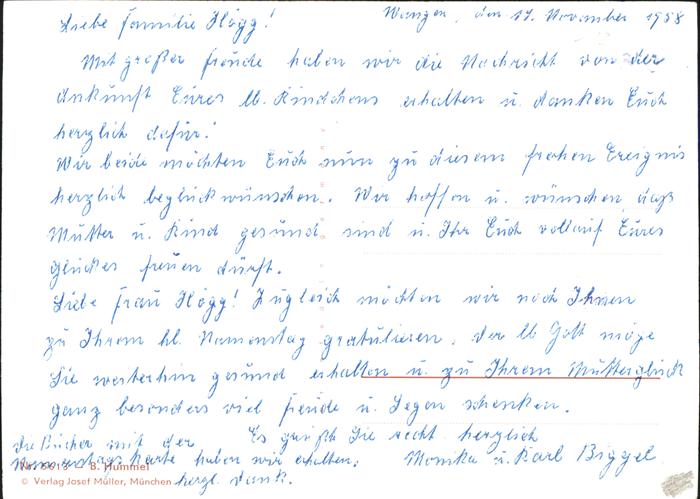 Liebe Familie Högg! Wangen, den 17. November 1958
Mit großer Freude haben wir die Nachricht von der
Ankunft Eures lb. Kindchens erhalten u. danken Euch
herzlich dafür!
Wir beide möchten Euch nun zu diesem frohen Ereignis
herzlich beglückwünschen. Wir hoffen u. wünschen, daß
Mutter u. Kind gesund sind u. Ihr Euch vollauf Eures
Glückes freuen dürft.
Liebe Frau Högg! Zugleich möchten wir noch Ihnen
zu Ihrem hl. Namenstag gratulieren. Der lb Gott möge
Sie weiterhin gesund erhalten u. zu Ihrem Mutterglück
ganz besonders viel Freude u. Segen schenken.
Die Bücher mit der Es grüßt Sie recht herzlich
Namenstags-Karte haben wir erhalten. Monika u. Karl Biggel
B. Hummel
© Verlag Josef Müller, München
hergl. Dank.